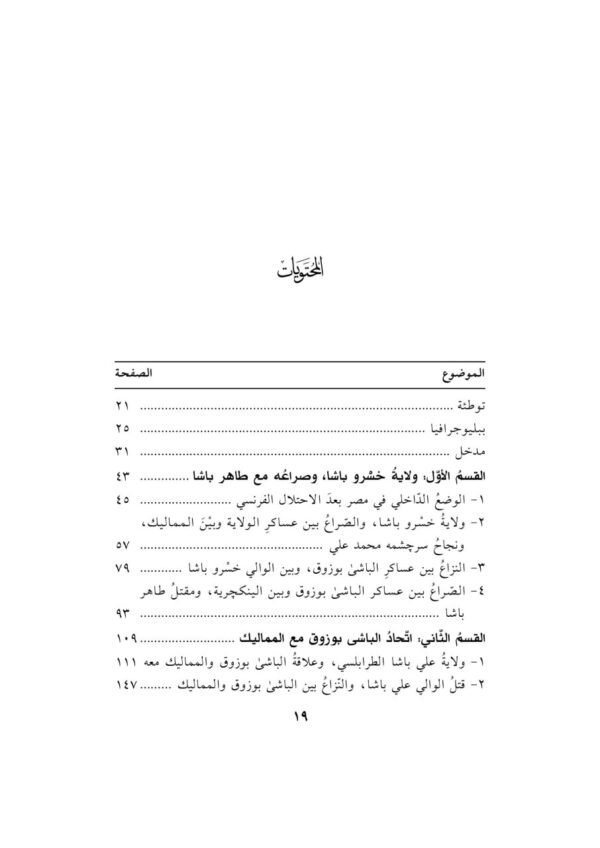 المُحْتَوَيَات
الموضوع الصفحة
توطئة ................ ٢١
ببليوجرافيا ................ ٢٥
مدخل ................ ٣١
القسمُ الأوّل: ولايةُ خسْرو باشا، وصراعُه مع طاهر باشا ............. ٤٣
١- الوضعُ الدّاخلي في مصر بعدَ الاحتلال الفرنسي ................ ٤٥
٢- ولايةُ خسْرو باشا، والصّراعُ بين عساكرِ الولاية وبيْنَ المماليك،
ونجاحُ سرچشمه محمد علي ................ ٥٧
٣- النزاعُ بين عساكرِ الباشىْ بوزوق، وبين الوالي خسْرو باشا ............ ٧٩
٤- الصّراعُ بين عساكر الباشىْ بوزوق وبين الينكچرية، ومقتلُ طاهر
باشا ................ ٩٣
القسمُ الثّاني: اتّحادُ الباشى بوزوق مع المماليك ................ ١٠٩
١- ولايةُ علي باشا الطرابلسي، وعلاقةُ الباشىْ بوزوق والمماليك معه ١١١
٢- قتلُ الوالي علي باشا، والنّزاعُ بين الباشىْ بوزوق والمماليك ......... ١٤٧
١٩